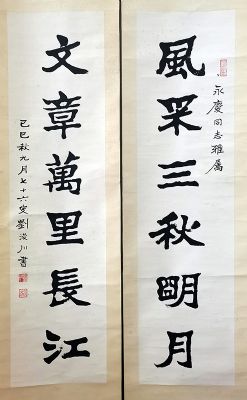 永慶同志雅屬
風采三秋明月
文章萬里長江
己巳秋九月七十六叟劉浚川書